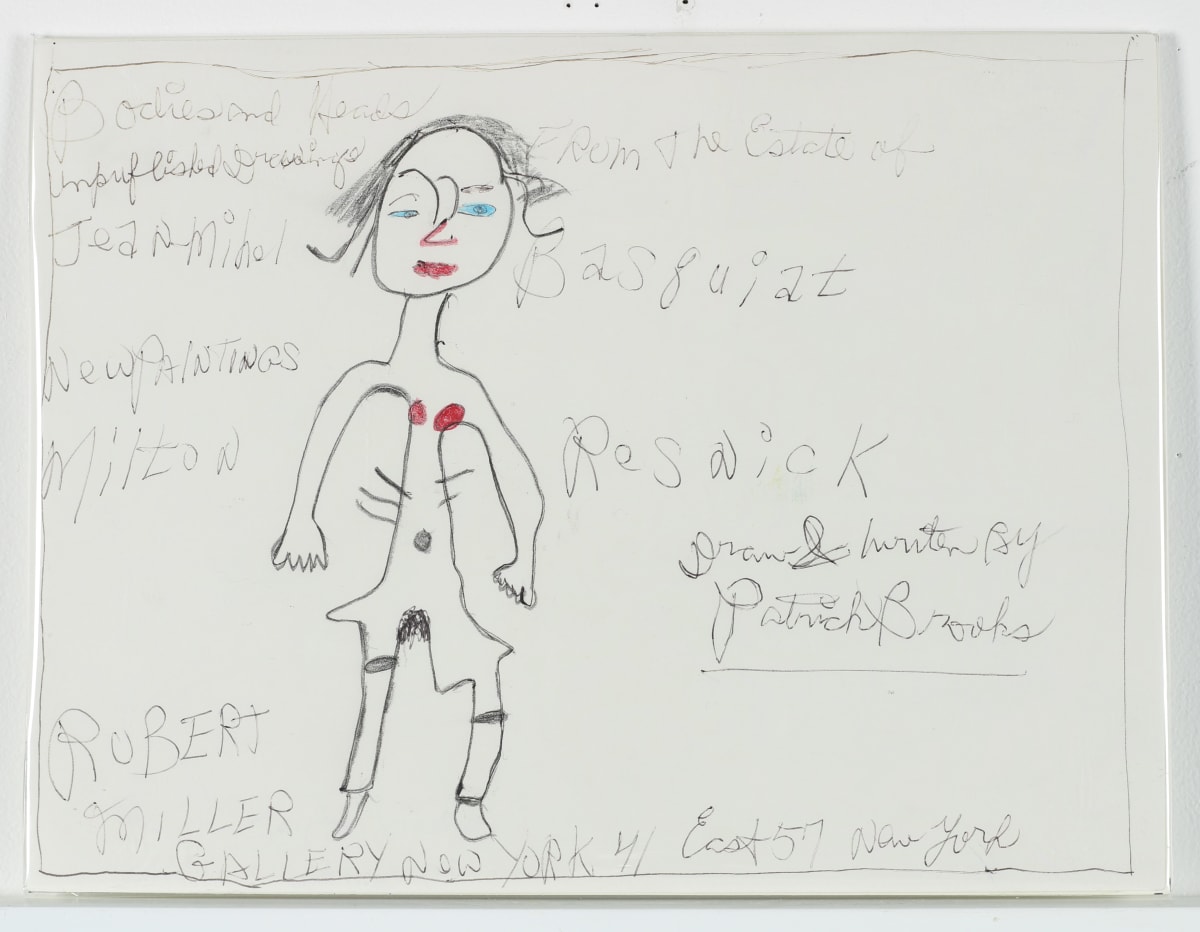 Bodies and Heads
From the Estate of
unpublished Drawings
Jean-Mihel
Basquiat
New PAINTINGS
Milton
Resnick
Draw & writen By
Patrick Brooks
RoBERT
MILLER
GALLERY New YORK 41
East 57 New York